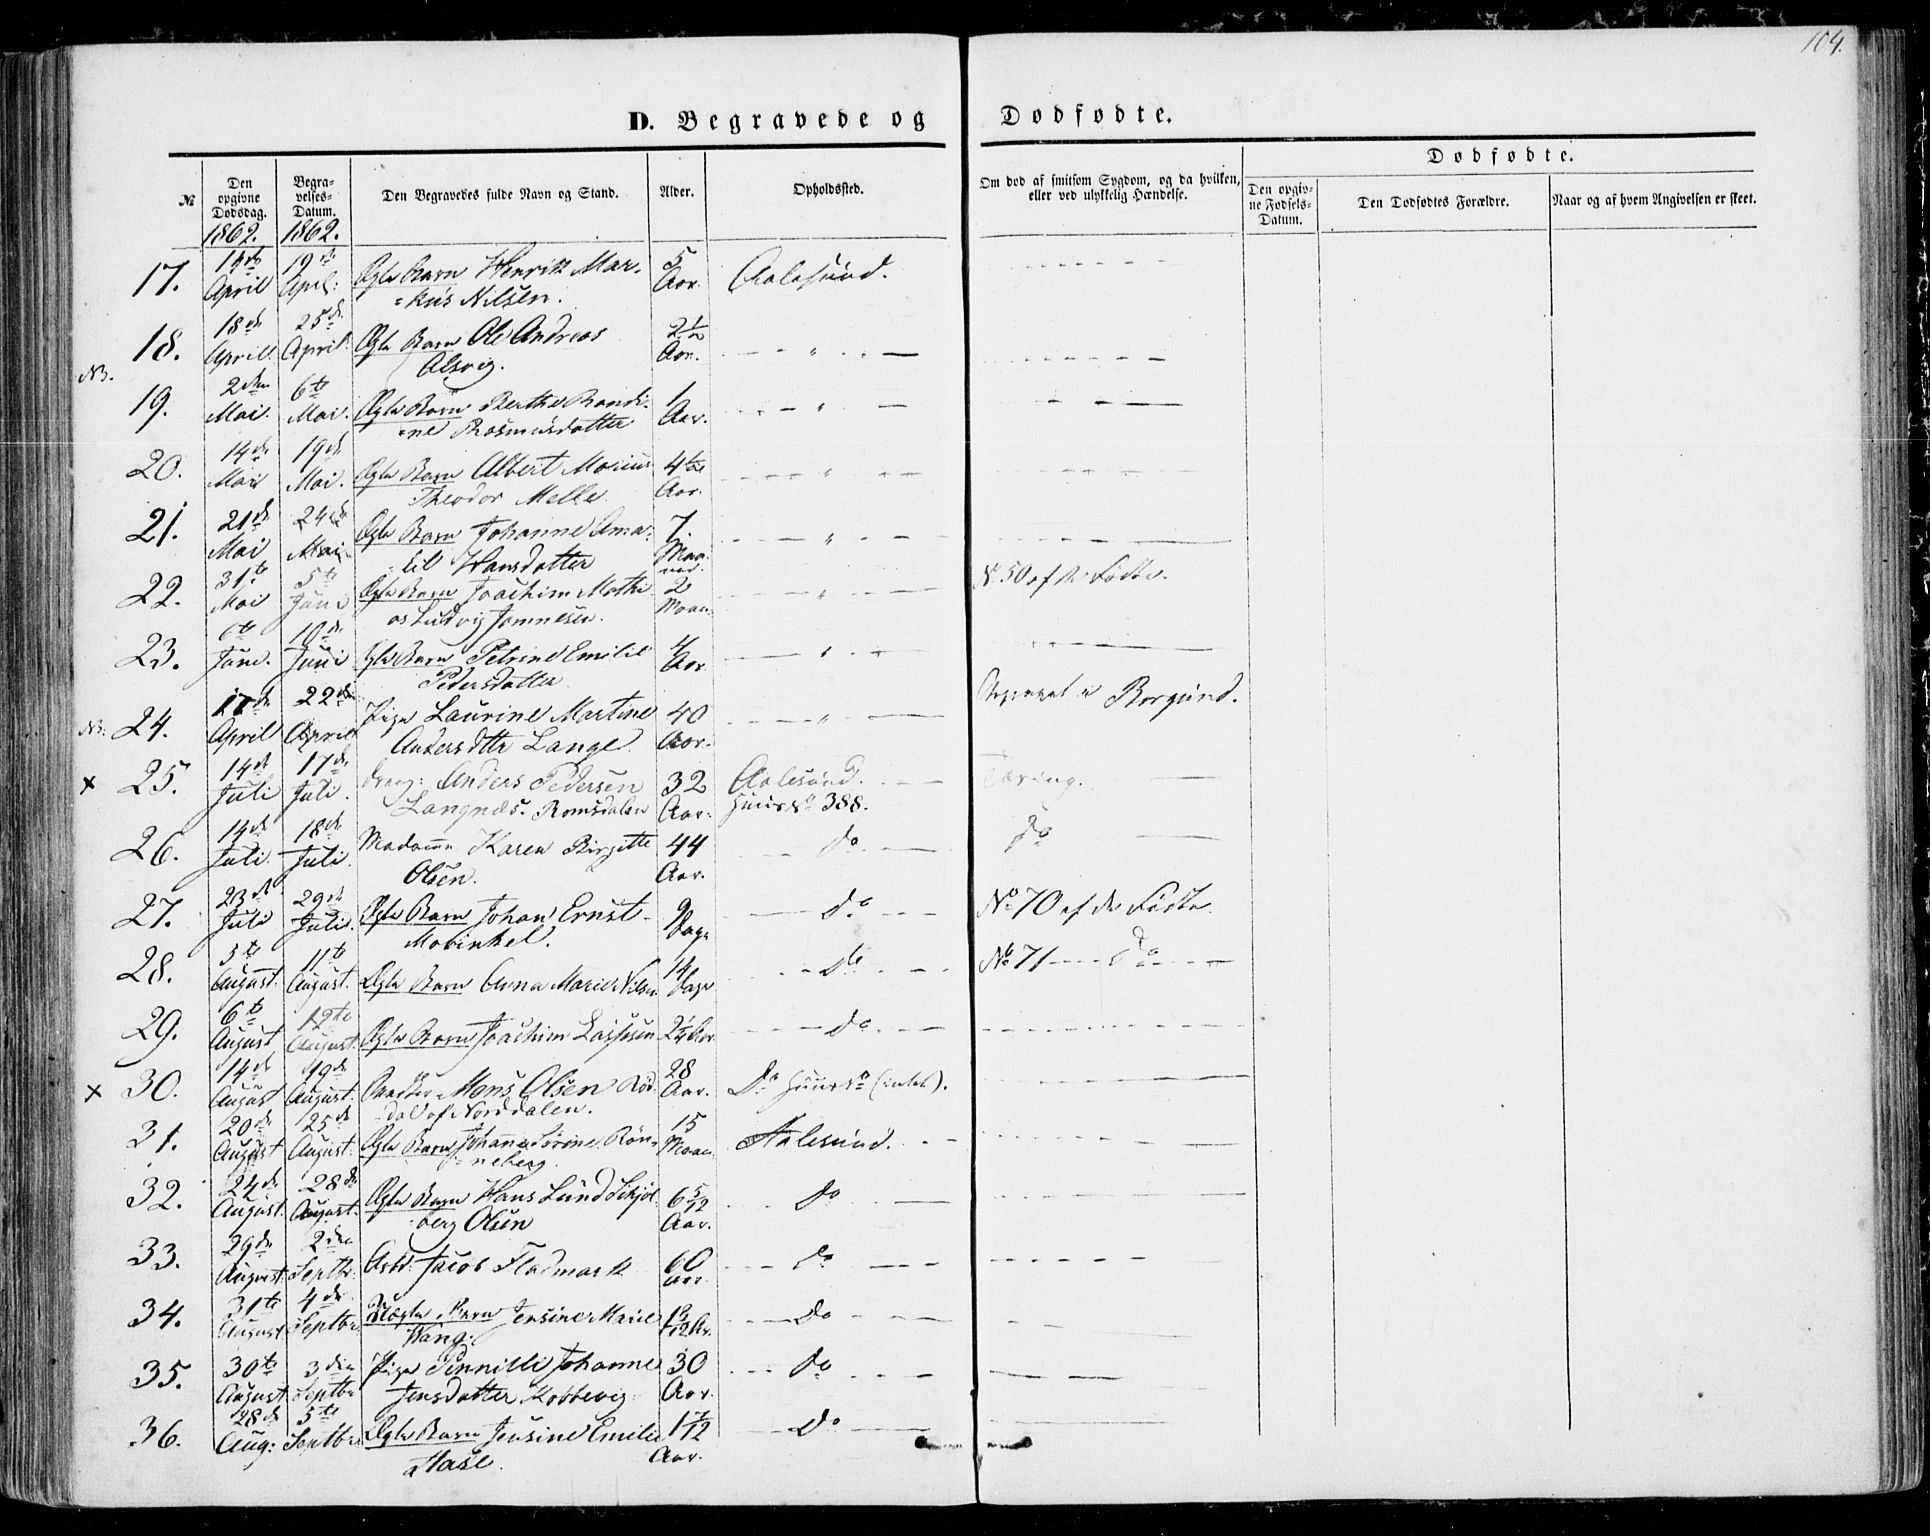 104.
D. Begravede og Dødfødte.
№
Den opgivne Dødsdag.
Begravelses-Datum.
Den Begravedes fulde Navn og Stand.
Alder.
Opholdssted.
Om død af smitsom Sygdom, og da hvilken, eller ved ulykkelig Hændelse.
Dødfødte.
Den opgivne Fødsels-Datum.
Den Dødfødtes Forældre.
Naar og af hvem Angivelsen er skeet.
1862. 1862.
17. April 19de April: Ægte Barn Henrik Mar-
=kus Nilsen. 5 Aar. Aalesund.
18. 18de April 25de April. Ægte Barn Ole Andreas
Alsvig. 2½ Aar. — " —
NB.
19. 2den Mai. 6te Mai. Ægte Barn Berthe Randi-
=ne Rasmusdatter 1 Aar. — " —
20. 14de Mai 19de Mai. Ægte Barn Albert Marius
Theodor Melle. 4 Aar. — " —
21. 21de Mai 24de Mai Ægte Barn Johanne Ama-
=lie Hansdatter 7. Maaned. — " —
22. 31te Mai 5te Juni Ægte Barn Joachim Mathi
as Ludvig 2 Maan. — " — No 50 af de Fødte.
23. 6te Juni. 10de Juni Ægte Barn Petrine Emilie
Pedersdatter. Aar — " —
NB. 24. 17de April 22de April Pige Laurine Martine
Andersdttr Lange. 40 Aar. — " — Begravet i Borgund.
x 25. 14de Juli 17de Juli. Anders Pedersen
Langnæs. Romsdalen 32 Aar. Aalesund. Huus No 388. Tæring.
26. 14de Juli. 18de Juli. Madame Karen Birgitte
Olsen. 44 Aar. — do — do —
27. 23de Juli 29de Juli. Ægte Barn Johan Ernst
Mobinkel. 9 Dage — do — No 70 af de Fødte.
28. 5te August. 11te August. Ægte Barn Anna Marie Nilsen 14 Dage — do — No 71 — do —
29. 6te August 12te August. Ægte Barn Joachim Lassesen 2¼ Aar — do —
x 30. 14de August 19de August. Mons Olsen Rød-
=dal af Norddalen. 28 Aar. Do Huus No (intet).
31. 20de August 25de August. Ægte Barn Johanne Sørine Røn-
=neberg. 15 Maan. Aalesund.
32. 24de August. 28de August. Ægte Barn Hans Lund
=berg Olsen 6 5/12 Aar. — do —
33. 29de August. 2den Septbr. Arbd: Jacob Fladmark 60 Aar. — do —
34. 31te August 4de Septbr. Uægte Barn Jensine Marie
Wang. — Do —
35. 30te August 3die Septbr Pige Pernille Johanne
Jensdatter Kobbevig. 30 Aar. — do —
36. 28de Aug: 5te Septbr. Ægte Barn Jensine Emilie
Hase. 1 7/12 Aar. — Do —